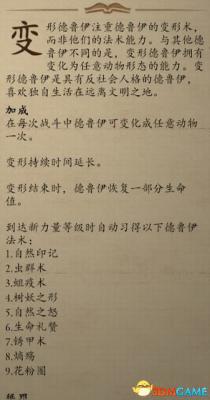 变形德鲁伊注重德鲁伊的变形术，
而非他们的法术能力。与其他德
鲁伊不同的是，变形德鲁伊拥有
变化为任意动物形态的能力。变
形德鲁伊是具有反社会人格的德鲁伊，
喜欢独自生活在远离文明之地。
加成
在每次战斗中德鲁伊可变化成任意动物
一次。
变形持续时间延长。
变形结束时，德鲁伊恢复一部分生命
值。
到达新力量等级时自动习得以下德鲁伊
法术：
1.自然印记
2.虫群术
3.蛆疫术
4.树妖之形
5.自然之怒
6.生命礼赞
7.锈甲术
8.熵殇
9.花粉圈
GAME